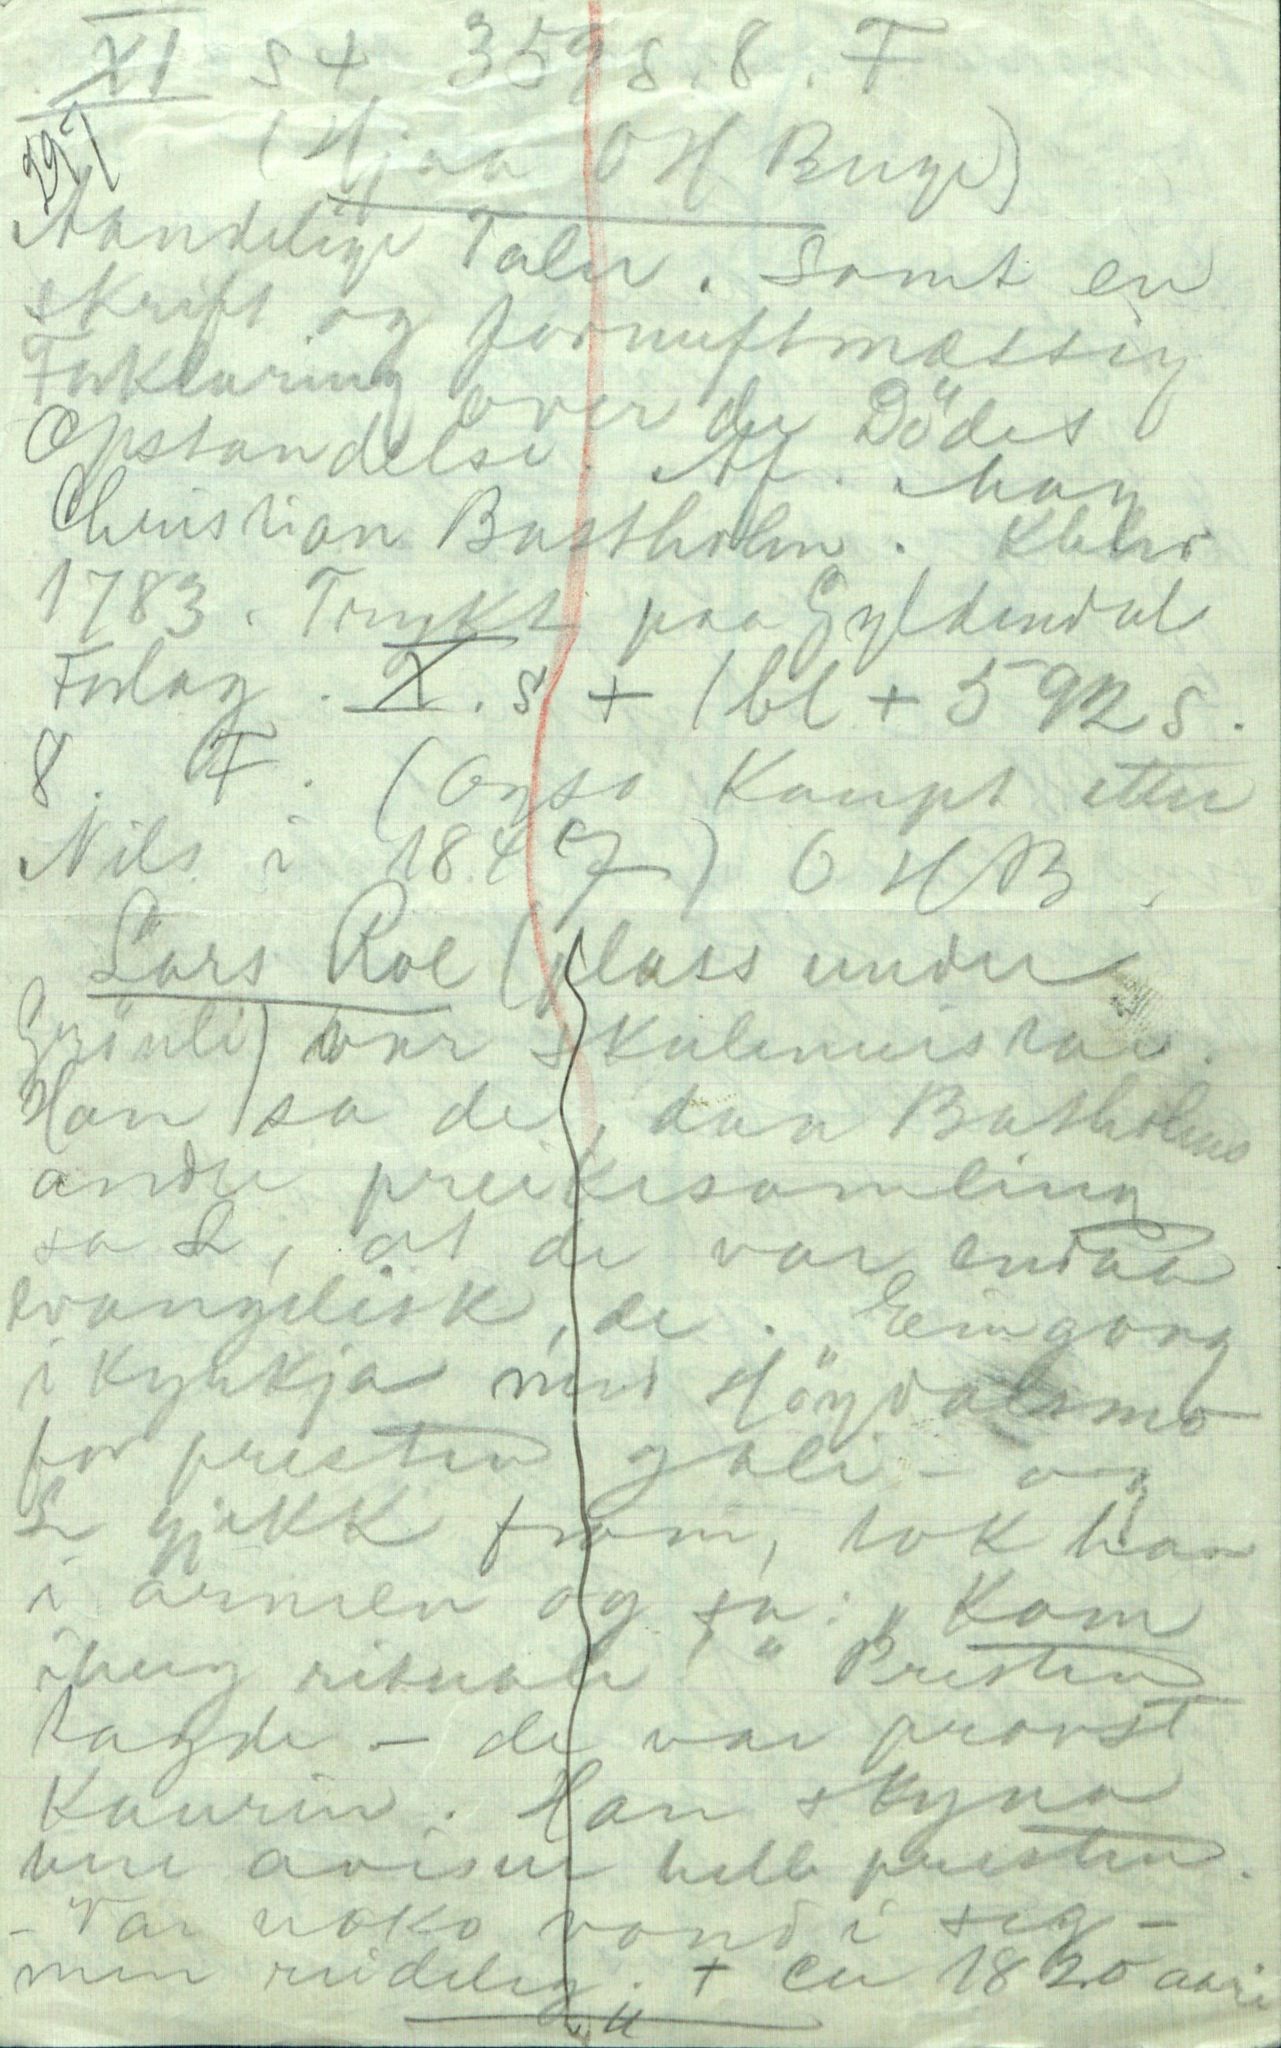 XI s + 359 s. 8. F
(Hjaa OH Buge)
397
Aandelige Taler. Samt en
skrift og fornuftmæssig
Forklaring over de Dödes
Opstandelse. Af. Mag
Christian Bastholm. Kbhvn
1783. Trykt paa Gyldendal
Forlag. X. s + 1 bl + 592 s.
8. F. (Ogso Kaupt etter
Nils i 1847) OHB.
Lars Roe (plass under
Grönli) var skulemeistar.
Han sa de, daa Bastholms
andre preikesamling
sa L, at de var endaa
evangelisk, de. Eingong
i kyrkja ned Höydalsmo
for presten gale - og
L gjekk fram, tok han
i armen og sa: „Kom
ihug rituale" Presten
tagde - de var provst
Kaurin. Han skyna
avisur helle presten.
- Var noko vond i seg -
men reideleg. + ca 1820 aari